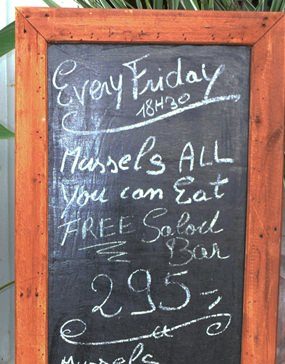 Every Friday
18H30
Mussels ALL
You can Eat
FREE Salad
Bar
295,-
Mussels